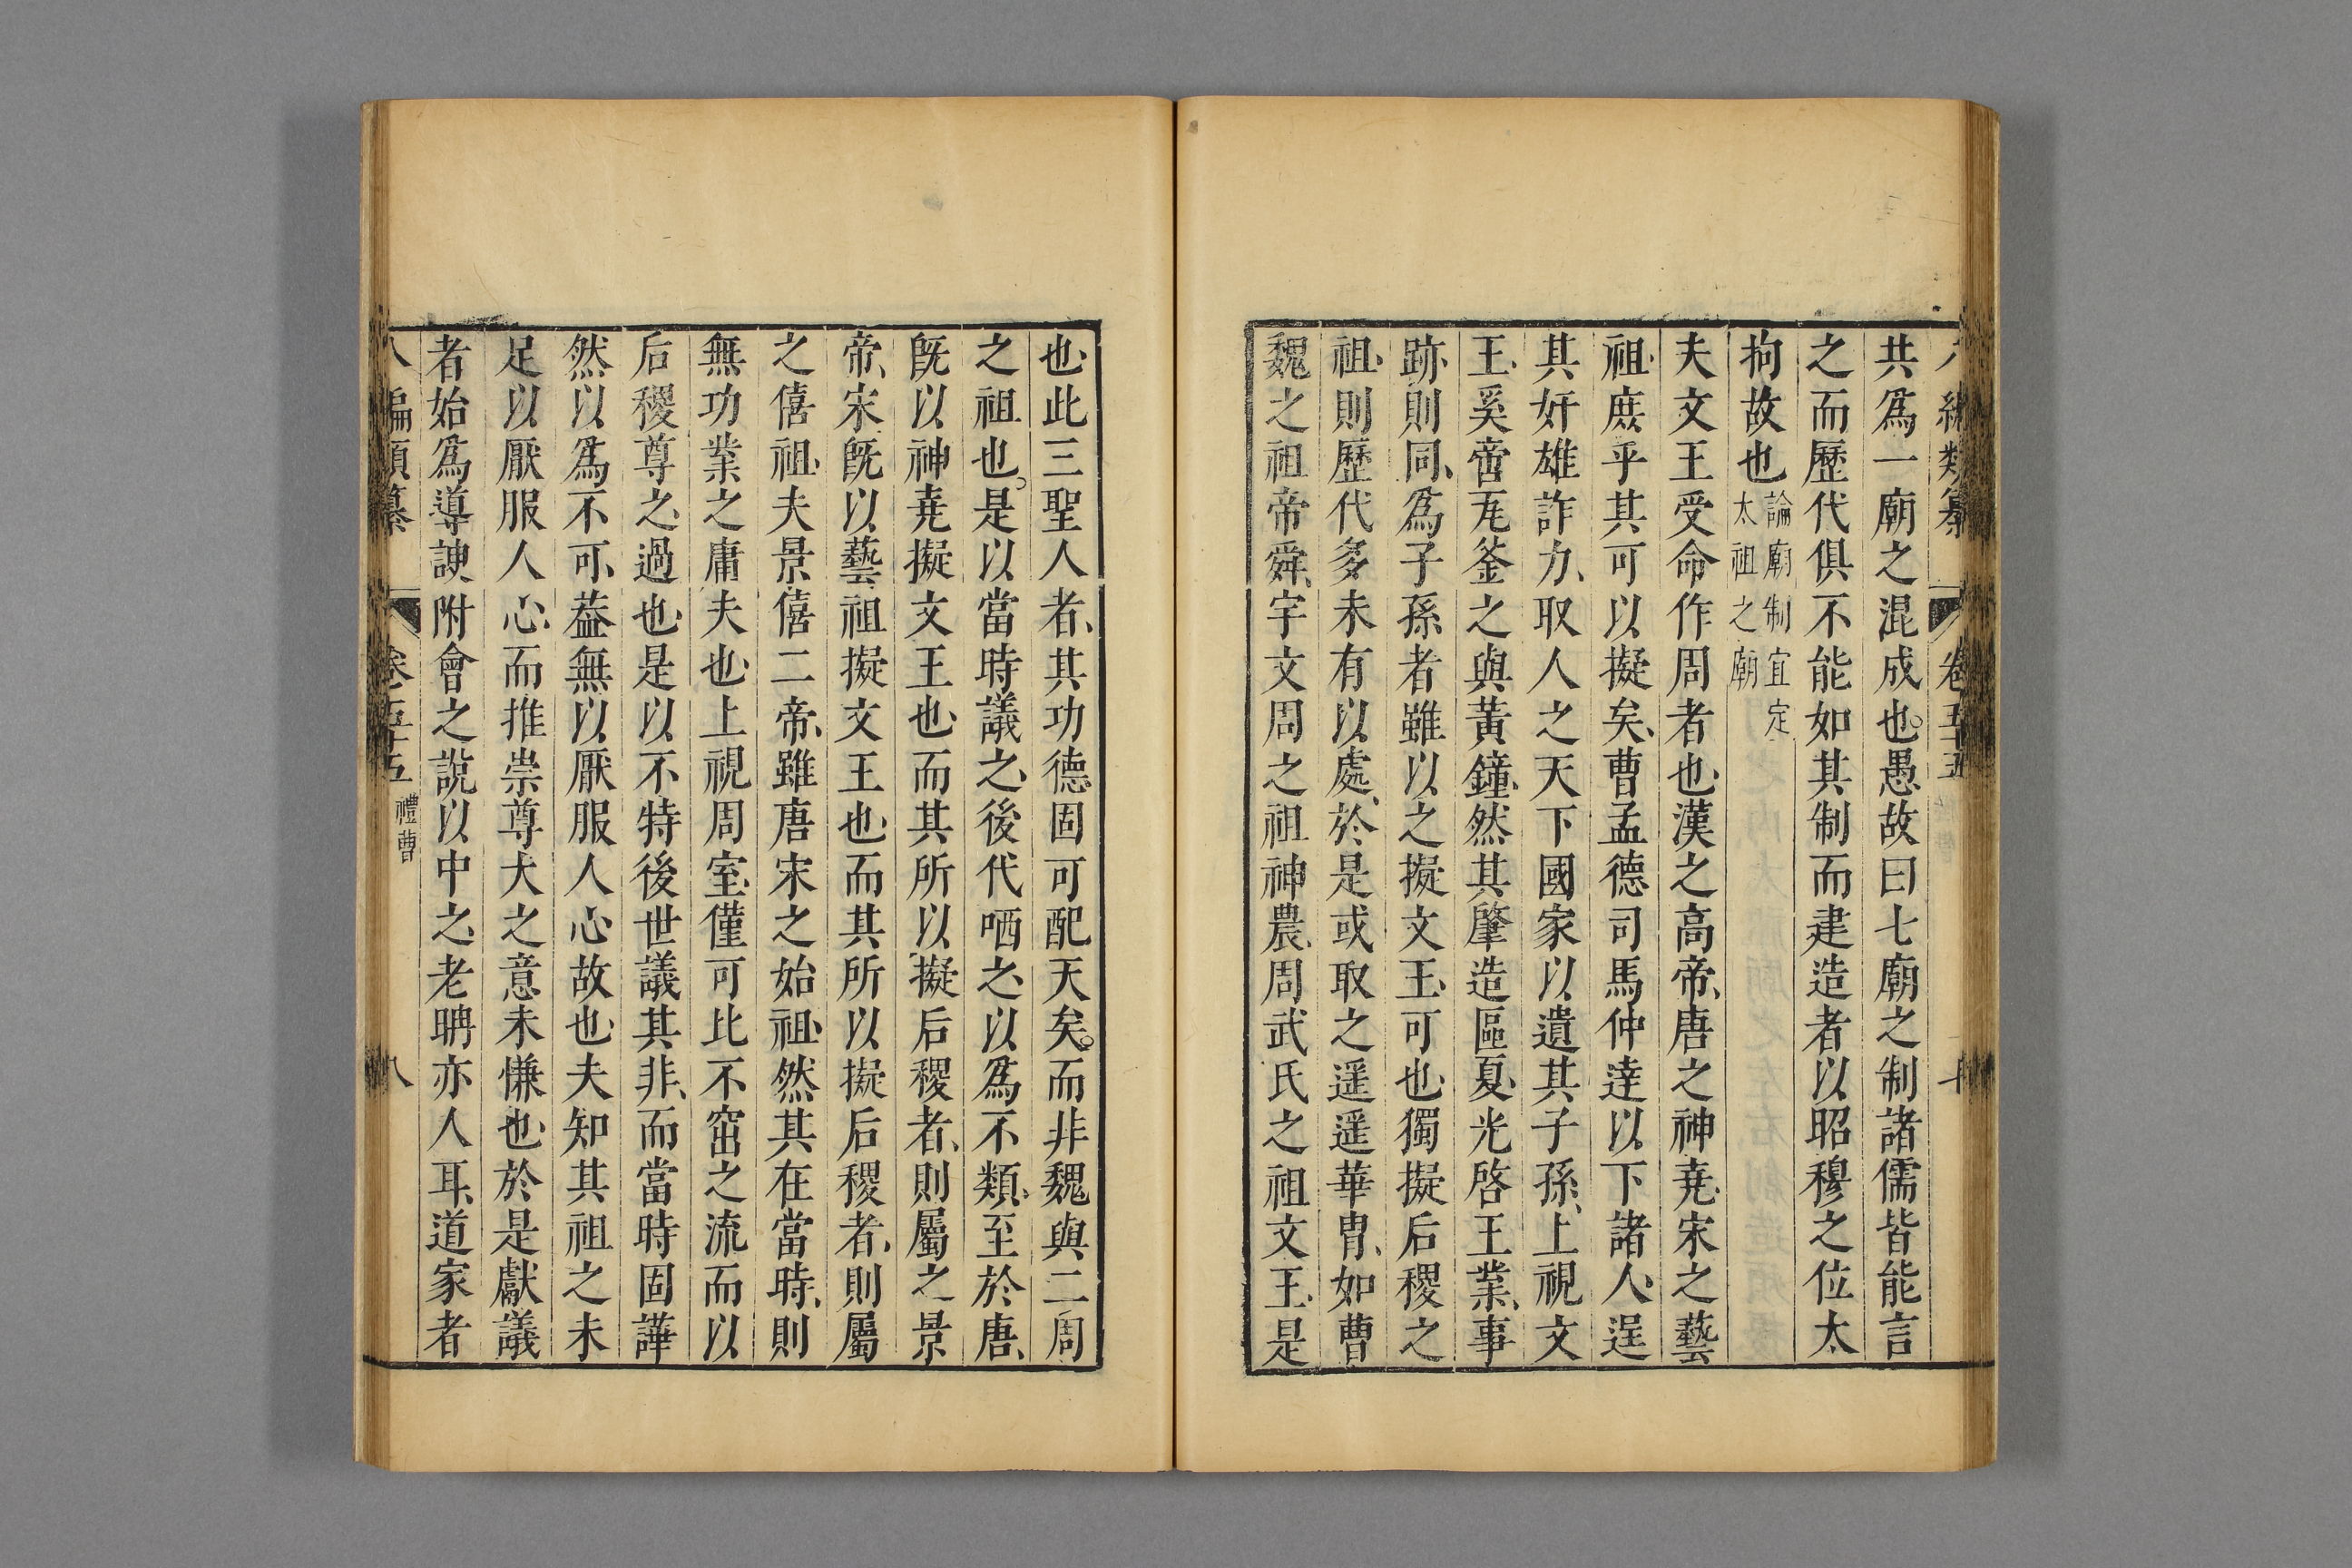 共爲一廟之混成也愚故曰七廟之制諸儒皆能言
之而歷代俱不能如其制而建造者以昭穆之位太
拘故也論廟制宜定太祖之廟
夫文王受命作周者也漢之高帝唐之神堯宋之藝
祖庶乎其可以擬矣曹孟德司馬仲達以下諸人逞
其奸雄詐力取人之天下國家以遺其子孫上視文
王奚啻瓦釜之與黃鐘然其肇造區夏光啓王業事
跡則同爲子孫者雖以之擬文王可也獨擬后稷之
祖則歷代多未有以處於是或取之遥遥華胄如曹
魏之祖帝舜宇文周之祖神農周武氏之祖文王是
也此三聖人者其功德固可配天矣而非魏與二周
之祖也是以當時議之後代哂之以爲不類至於唐
旣以神堯擬文王也而其所以擬后稷者則屬之景
帝宋旣以藝祖擬文王也而其所以擬后稷者則屬
之僖祖夫景僖二帝雖唐宋之始祖然其在當時則
無功業之庸夫也上視周室僅可比不窋之流而以
后稷尊之過也是以不特後世議其非而當時固譁
然以爲不可葢無以厭服人心故也夫知其祖之未
足以厭服人心而推崇尊大之意未慊也於是獻議
者始爲導諛附會之說以中之老聃亦人耳道家者
八編類纂 卷之五十五 禮曹 八